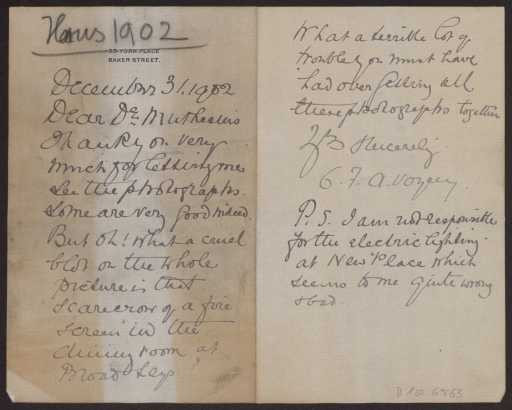 Haus 1902
23 YORK PLACE
BAKER STREET.
December 31. 1902
Dear Dr. Muthesius
Thank you very
much for letting me
see the photographs.
Some are very good indeed.
But oh! what a cruel
blot on the whole
picture is that
scarecrow of a fire
screen in the
dining room at
Broad Leys!
What a terrible lot of
trouble you must have
had over getting all
these photographs together
Yrs Sincerely
C. F. A. Voysey
P. S. I am not responsible
for the electric lighting
at New Place which
seems to me quite wrong
& bad.